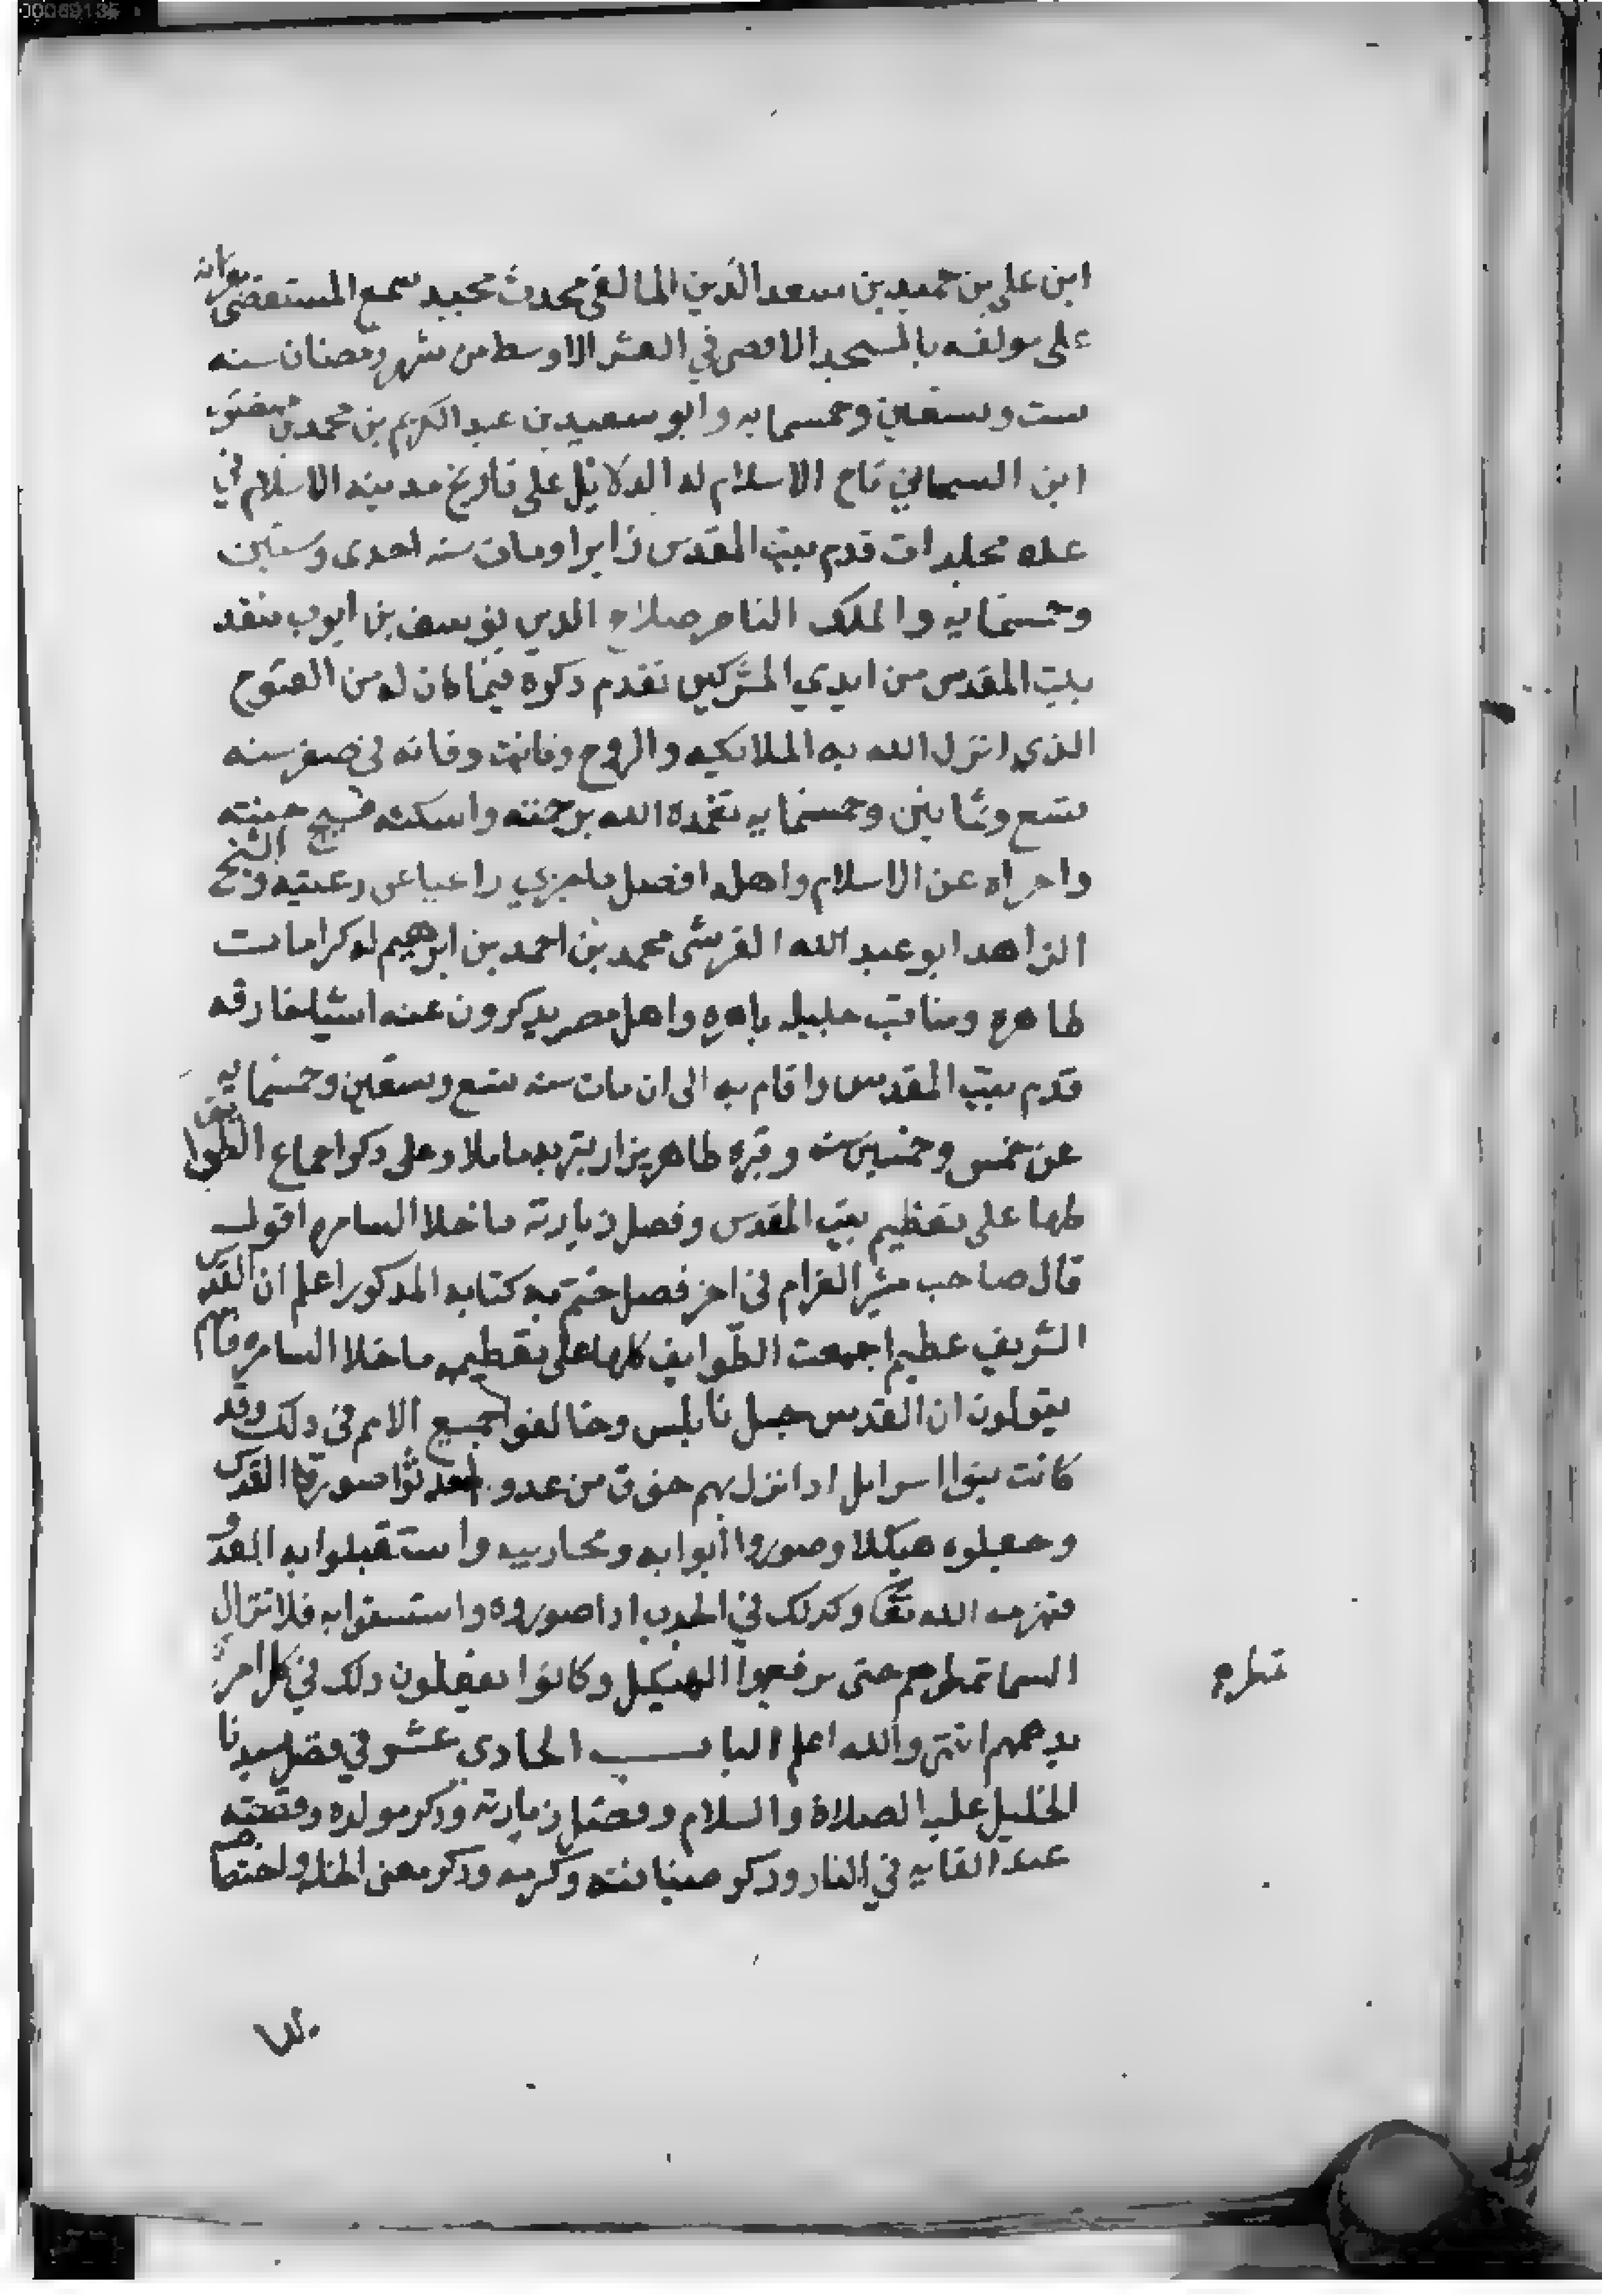 ابن علي بن حميد بن سعد الدين المالقى محدث مجيد سمع المستقصى بقراته
على مولفه بالمسجد الاقصى في العشر الاوسط من شهر رمضان سنه
ست وسعين وخمسمايه وابو سعيد بن عبد الكريم بن محمد بن منصور
ابن السمعاني تاج الاسلام له الدلائل على تاريخ مدينه الاسلام في
عده مجلدات قدم بيت المقدس زايرا ومات سنه احدى وستين
وخمسمايه والملك الناصر صلاح الدين يوسف بن ايوب منقد
بيت المقدس من ايدي المشركين تقدم دكره فيما كان له من الفتوح
الذي انزل الله به الملايكه والروح وكانت وفاته في صفر سنه
تسع وثمانين وخمسمايه تغمده الله برحمته واسكنه فسيح جنته
واجزاه عن الاسلام واهله افضل ما جزي راعيا عن رعيته والشيخ
الزاهد ابو عبد الله القرشى محمد بن احمد بن ابرهيم له كرامات
ظاهره ومناقب جليله باهره واهل مصر يدكرون عنه اشيا خارقه
قدم بيت المقدس واقام به الى ان مات سنه تسع وتسعين وخمسمايه
عن خمس وخمسين سنه وقبره ظاهر يزار بتربه ماملا وعلى دكر اجماع الطوايف
كلها على تعظيم بيت المقدس وفضل زيارته ما خلا السامره اقول
قال صاحب مثير الغرام في اخر فصل ختم به كتابه المدكور اعلم ان القدس
الشريف عظيم اجمعت الطوايف كلها على تعظيمه ما خلا السامره فانهم
يقولون ان القدس جبل نابلس وخالفوا جميع الامم في دلك وقد
كانت بنوا اسرايل ادا نزل بهم خوف من عدو احدثوا صورة القدس
وجعلوه هيكلا وصوروا ابوابه ومحاريبه واستقبلوا به العدو
فيهزمه الله تعالى وكدلك في الجدب ادا صوروه واستسقوا به فلا تزال
السما تمطرهم حتى يرفعوا الهيكل وكانوا يفعلون دلك في كل امر
يدهمهم انتهى والله اعلم الباب الحادى عشر في فضل سيدنا
الخليل عليه الصلاة والسلام وفضل زيارته ودكر مولده وقصته
عند القايه في النار ودكر ضيافته وكرمه ودكر معنى الخله واختصاصه